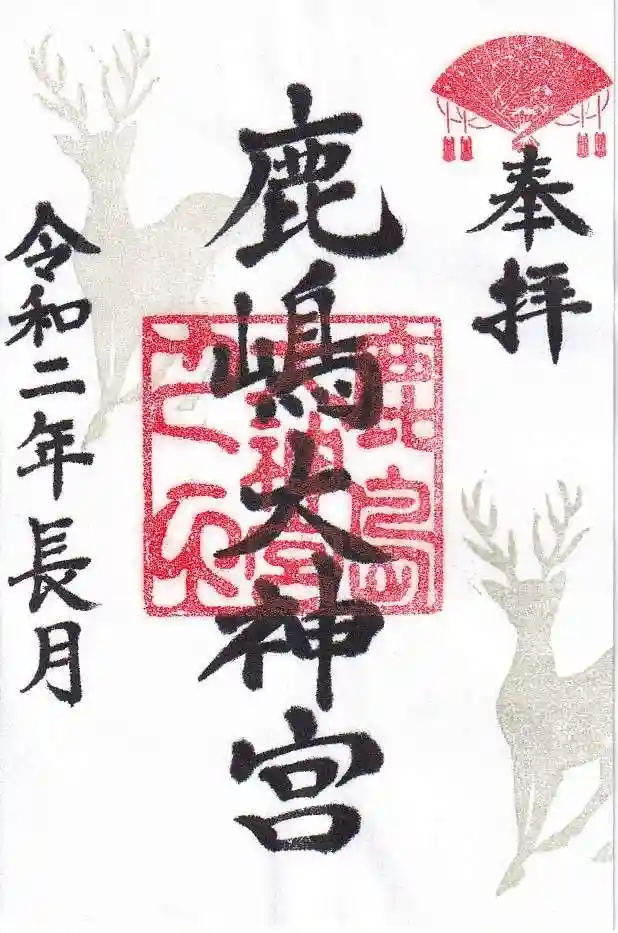 奉拝
鹿嶋大神宮
令和二年長月